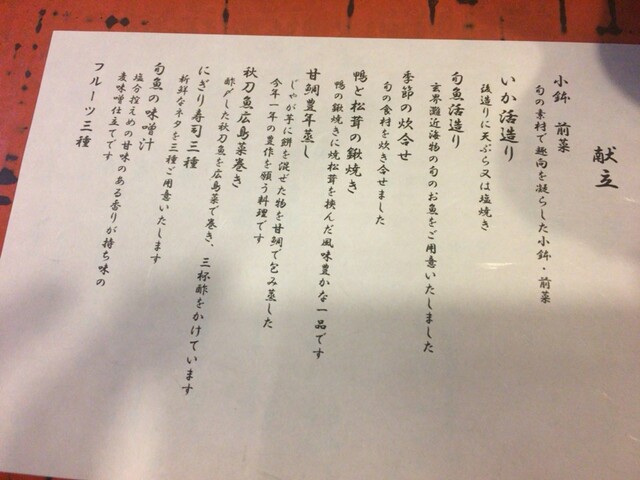 献立
小鉢　前菜
旬の素材で趣向を凝らした小鉢・前菜
いか活造り
後造りに天ぷら又は塩焼き
旬魚活造り
玄界灘近海物の旬のお魚をご用意いたしました
季節の炊合せ
旬の食材を炊き合せました
鴨と松茸の鍬焼き
鴨の鍬焼きに焼松茸を挟んだ風味豊かな一品です
甘鯛豊年蒸し
じゃが芋に餅を混ぜた物を甘鯛で包み蒸した
今年一年の豊作を願う料理です
秋刀魚広島菜巻き
酢〆した秋刀魚を広島菜で巻き、三杯酢をかけています
にぎり寿司三種
新鮮なネタを三種ご用意いたします
旬魚の味噌汁
塩分控えめの甘味のある香りが持ち味の
麦味噌仕立てです
フルーツ三種